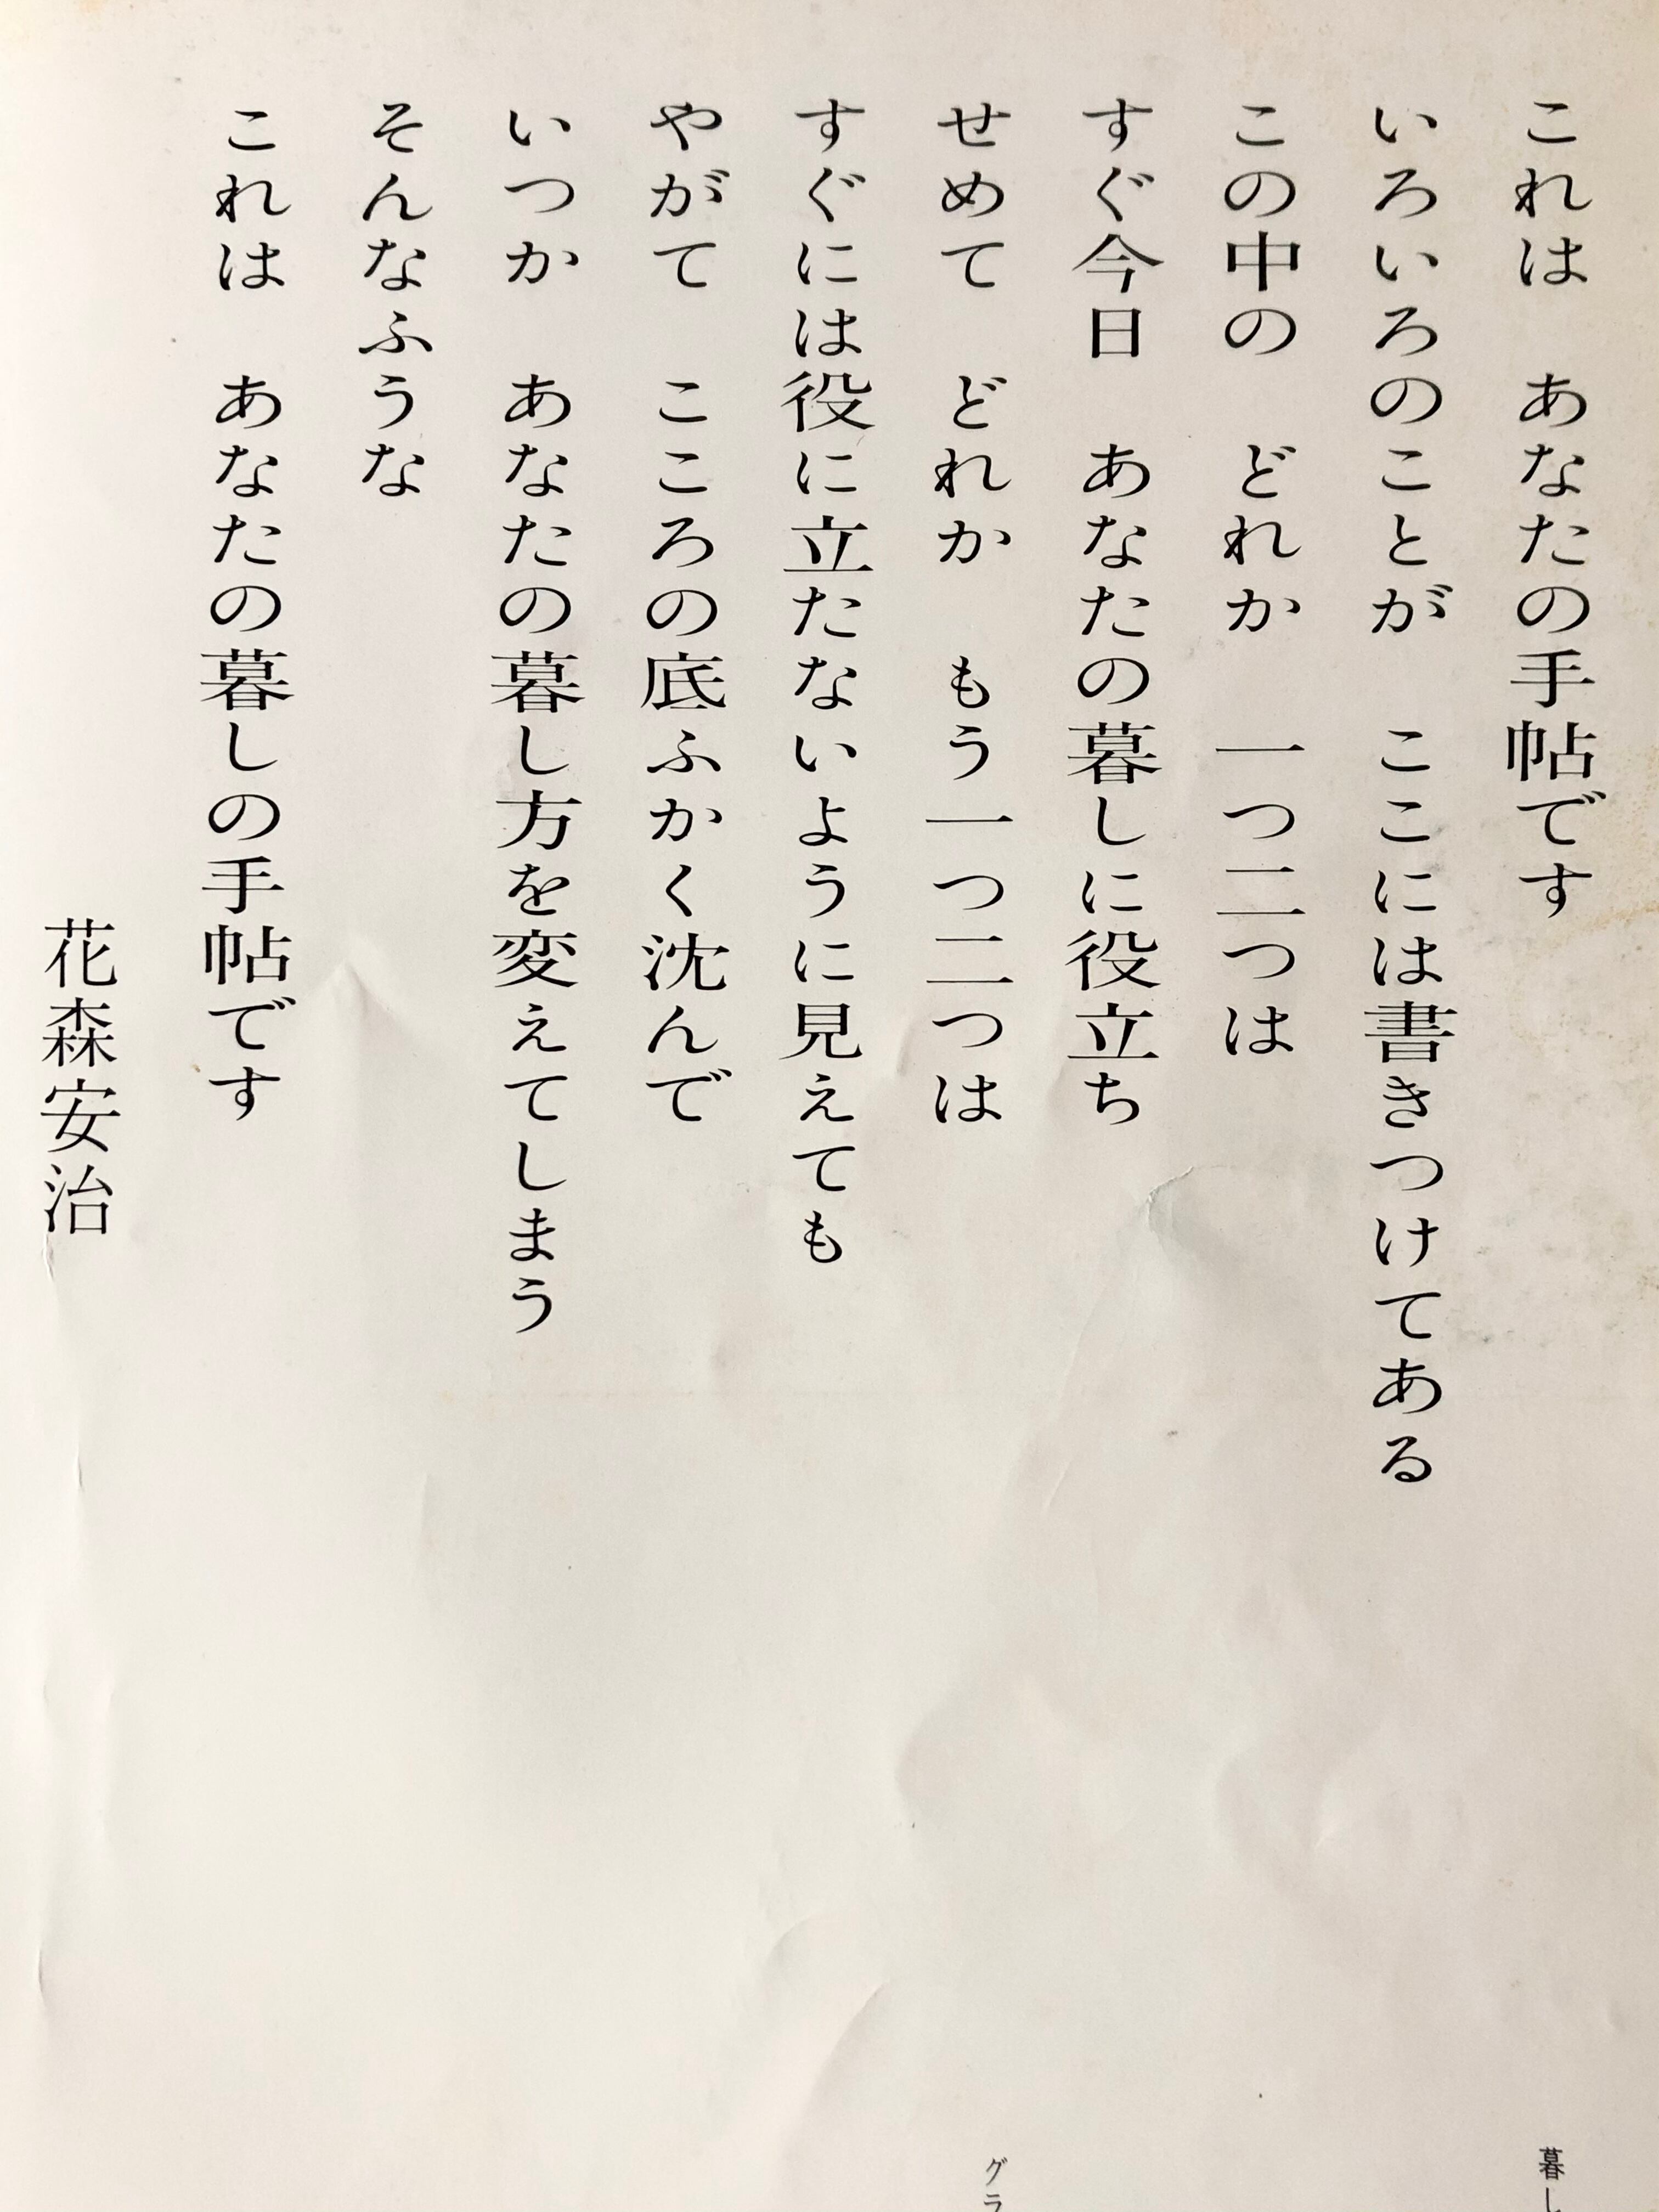 これは　あなたの手帖です
いろいろのことが　ここには書きつけてある
この中の　どれか　一つ二つは
すぐ今日　あなたの暮しに役立ち
せめて　どれか　もう一つ二つは
すぐには役に立たないように見えても
やがて　こころの底ふかく沈んで
いつか　あなたの暮し方を変えてしまう
そんなふうな
これは　あなたの暮しの手帖です
花森安治
暮し
グラ